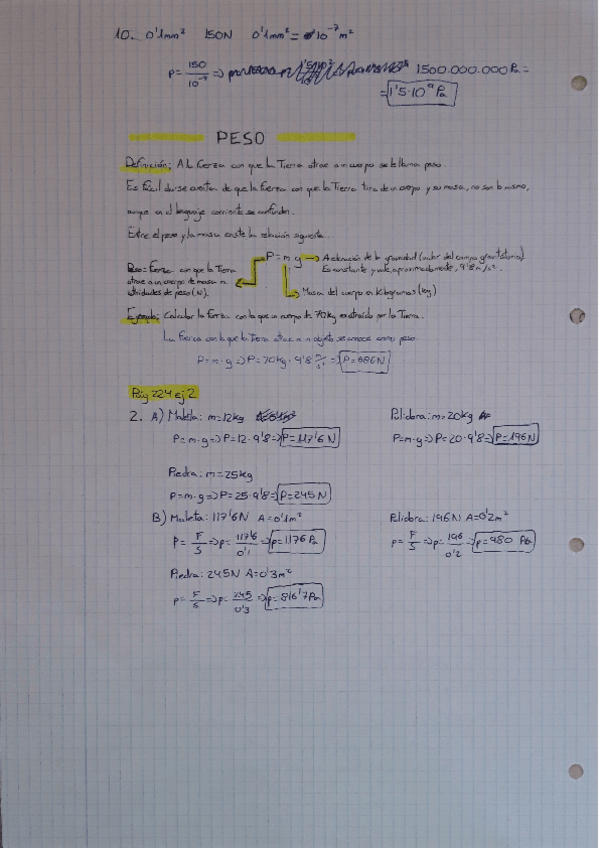 10. 0'1mm² 150N 0'1mm² = 10⁻⁷m²
p = 150/10⁻⁷ => 1500.000.000 Pa =
= 1'5·10⁹ Pa
PESO
Definición: A la fuerza con que la Tierra atrae a un cuerpo se le llama peso.
Es fácil darse cuenta de que la fuerza con que la Tierra tira de un cuerpo y su masa, no son lo mismo,
aunque en el lenguaje corriente se confunden.
Entre el peso y la masa existe la relación siguiente...
P = m g → Aceleración de la gravedad (valor del campo gravitatorio)
Es constante y vale, aproximadamente, 9'8 m/s².
Peso = Fuerza con que la Tierra
atrae a un cuerpo de masa m
unidades de peso (N).
Masa del cuerpo en kilogramos (kg)
Ejemplo: Calcular la fuerza con la que un cuerpo de 70kg es atraído por la Tierra.
La fuerza con la que la Tierra atrae a un objeto se conoce como peso.
P = m·g => P = 70kg · 9'8 m/s² => P = 686N
Pág 224 ej 2
2. A) Maleta: m = 12kg
P = m·g => P = 12·9'8 => P = 117'6N
Palidora: m = 20kg
P = m·g => P = 20·9'8 => P = 196N
Piedra: m = 25kg
P = m·g => P = 25·9'8 => P = 245N
B) Maleta: 117'6N A = 0'1m²
p = F/S => p = 117'6/0'1 => p = 1176 Pa
Palidora: 196N A = 0'2m²
p = F/S => p = 196/0'2 => p = 980 Pa
Piedra: 245N A = 0'3m²
p = F/S => p = 245/0'3 => p = 816'7 Pa